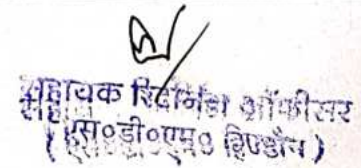 सहायक रिटर्निंग ऑफीसर
( एस०डी०एम० हिण्डौन )